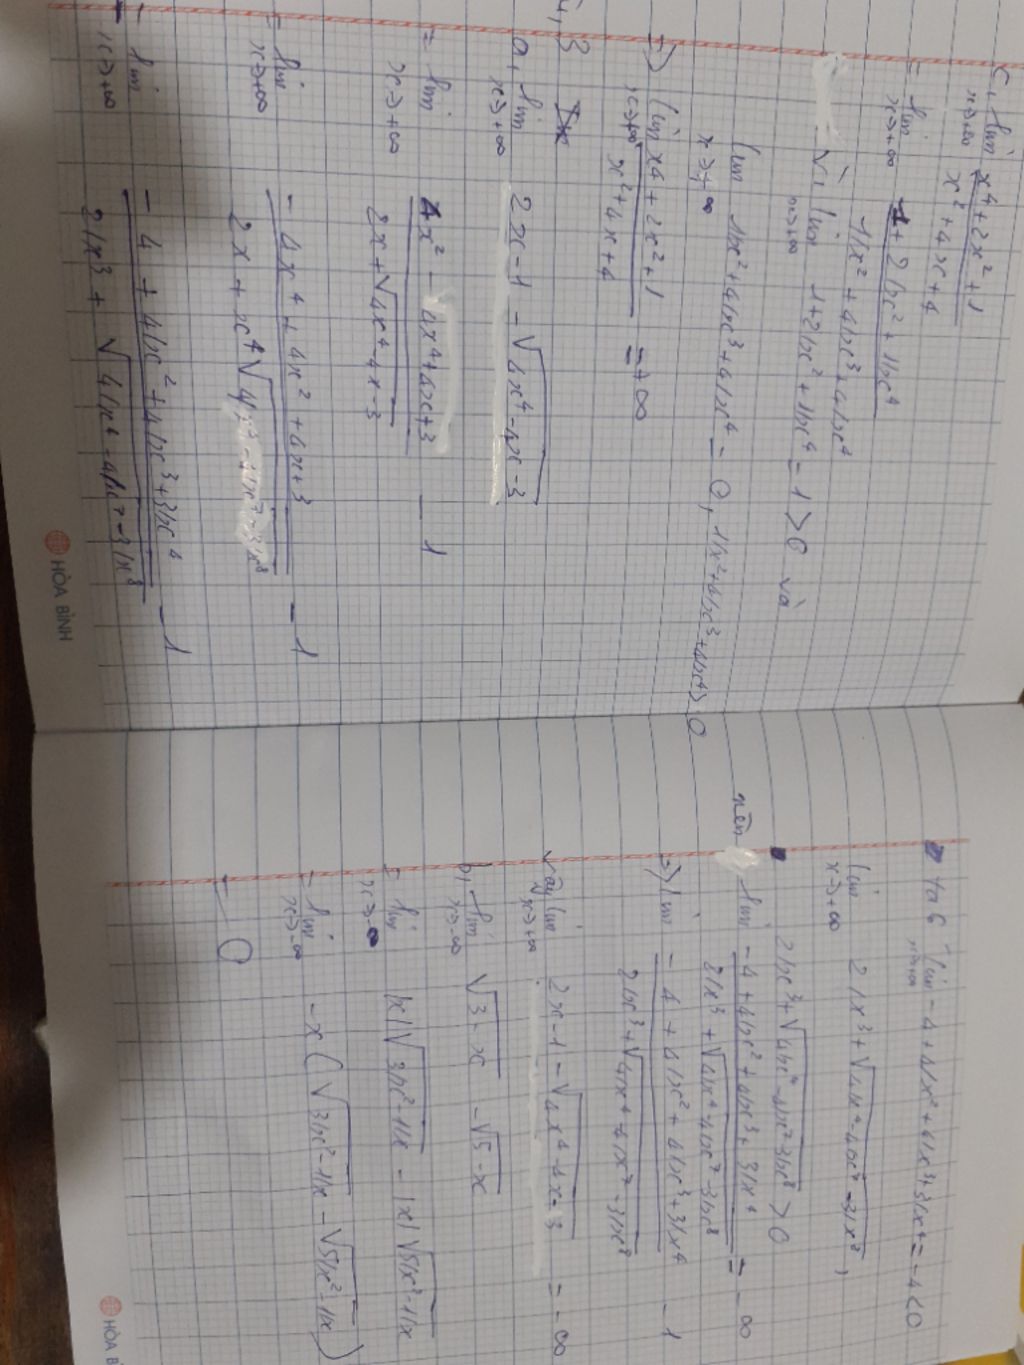 c, lim x⁴ + 2x² + 1
x→+∞ x² + 4x + 4
= lim 1 + 2/x² + 1/x⁴
x→+∞ 1/x² + 4/x³ + 4/x⁴
Vì lim 1 + 2/x² + 1/x⁴ = 1 > 0 và
x→+∞
lim 1/x² + 4/x³ + 4/x⁴ = 0, 1/x² + 4/x³ + 4/x⁴ > 0
x→+∞
=> lim x⁴ + 2x² + 1 = +∞
x→+∞ x² + 4x + 4
3
a, lim 2x - 1 - √4x⁴ - 4x - 3
x→+∞
= lim 4x² - 4x⁴ + 4x + 3 - 1
x→+∞ 2x + √4x⁴ - 4x - 3
= lim - 4x⁴ + 4x² + 4x + 3 - 1
x→+∞ 2x + x⁴√
= lim - 4 + 4/x² + 4/x³ + 3/x⁴ - 1
x→+∞ 2/x³ + √4/x⁴ - 4/x⁷ - 3/x⁸
HÒA BÌNH
ta có lim - 4 + 4/x² + 4/x³ + 3/x⁴ = - 4 < 0
x→+∞
lim 2/x³ + √4/x⁴ - 4/x⁷ - 3/x⁸ ,
x→+∞
2/x³ + √4/x⁴ - 4/x⁷ - 3/x⁸ > 0
nên lim - 4 + 4/x² + 4/x³ + 3/x⁴ = - ∞
2/x³ + √4/x⁴ - 4/x⁷ - 3/x⁸
=> lim - 4 + 4/x² + 4/x³ + 3/x⁴ - 1
2/x³ + √4/x⁴ - 4/x⁷ - 3/x⁸
Vậy lim 2x - 1 - √4x⁴ - 4x - 3 = - ∞
x→+∞
b, lim √3 - x - √5 - x
x→-∞
= lim |x|√3/x² - 1/x - |x|√5/x² - 1/x
x→-∞
= lim - x (√3/x² - 1/x - √5/x² - 1/x)
x→-∞
= 0
HÒA B